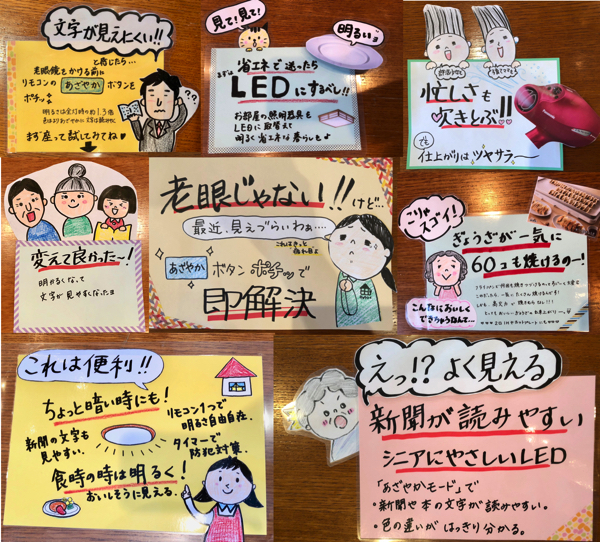 文字が見えにくい!!
と感じたら…
老眼鏡をかける前に
リモコンの あざやか ボタンを
ポチッ
まず座って試してみてね♥
見て!見て!
明るい
まずは 省エネで迷ったら
LEDにするべし!!
お部屋の照明器具も
LEDに取替えて
明るく省エネな暮らしを♪
忙しさも
吹きとぶ!!
でも
仕上がりはツヤサラ〜
変えて良かった〜!
明かるくなって
文字が見やすくなったヨ
老眼じゃない!!けど…
最近、見えづらいわぁ…
あざやか ボタン ポチッで
即解決
こりゃ
スゴイ!
ぎょうざが一気に
60コも焼けるのー!
こんなにおいしく
できちゃうなんて…
これは便利!!
ちょっと暗い時にも!
新聞の文字も
見やすい。
リモコン1つで
明るさ自由自在。
タイマーで
防犯対策。
食時の時は明るく!
おいしそうに見える。
えっ!?よく見える
新聞が読みやすい
シニアにやさしいLED
「あざやかモード」で
・新聞や本の文字が読みやすい。
・色の違いがはっきり分かる。